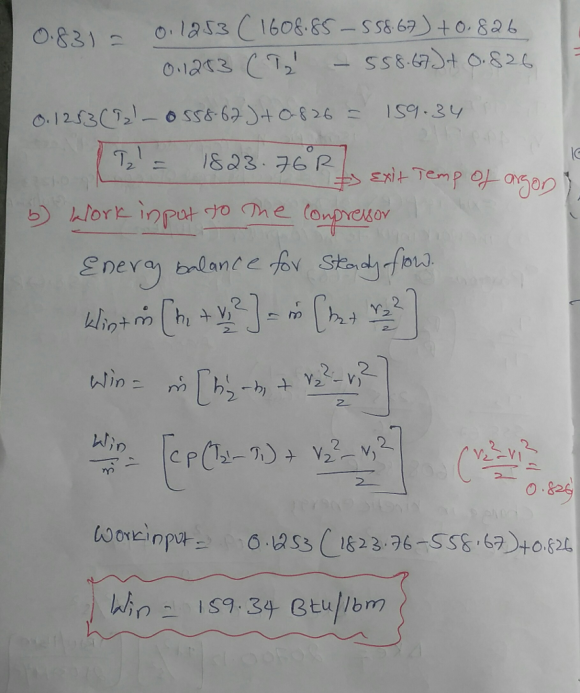 0.831 = 0.1253 (1608.85 - 558.67) + 0.826
0.1253 (T2' - 558.67) + 0.826
0.1253 (T2' - 558.67) + 0.826 = 159.34
T2' = 1823.76°R ⇒ Exit Temp of argon
b) Work input to the Compressor
Energy balance for Steady-flow.
Win + ṁ [h1 + V1²/2] = ṁ [h2 + V2²/2]
Win = ṁ [h2' - h1 + V2² - V1²/2]
Win/ṁ = [Cp (T2' - T1) + V2² - V1²/2] (V2² - V1²/2 = 0.826)
Workinput = 0.1253 (1823.76 - 558.67) + 0.826
Win = 159.34 Btu/lbm